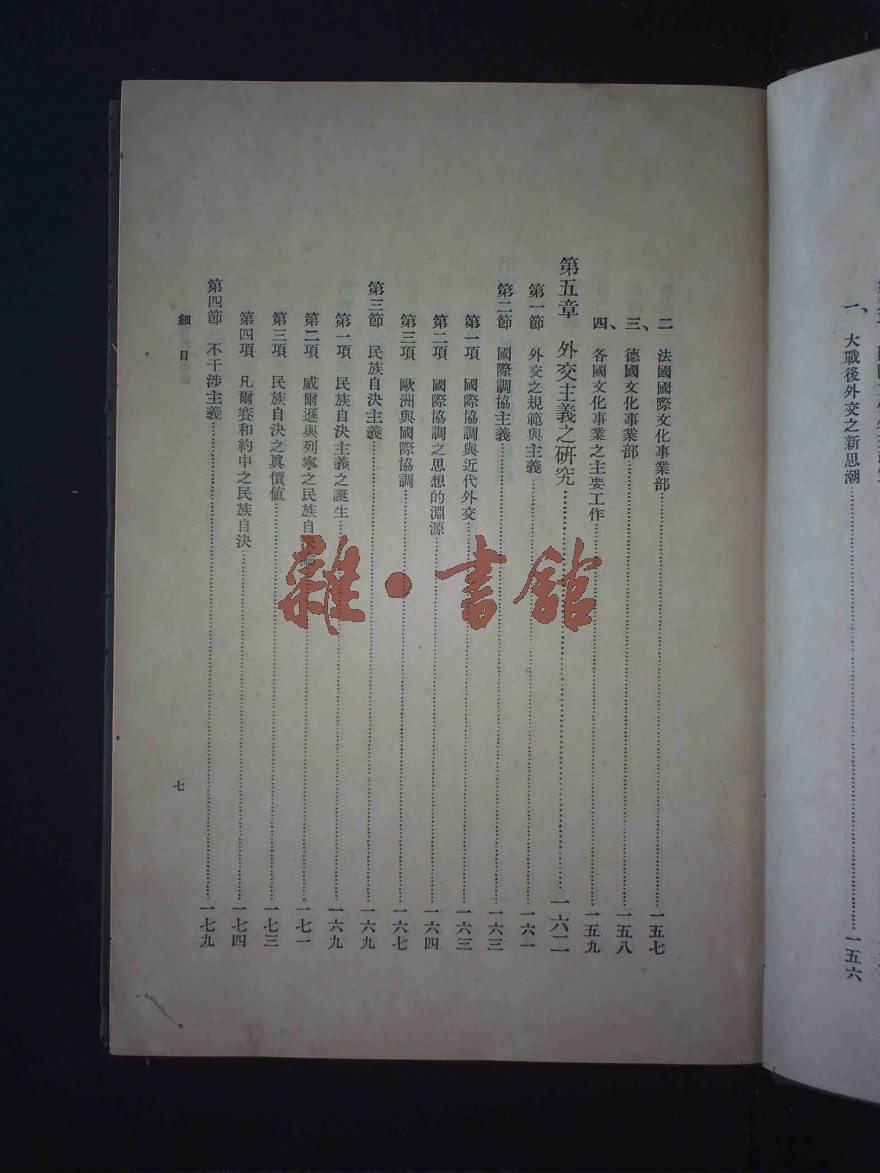 一、大戰後外交之新思潮……一五六
二、法國國際文化事業部……一五七
三、德國文化事業部……一五八
四、各國文化事業之主要工作……一五九
第五章 外交主義之研究……一六一
第一節 外交之規範與主義……一六一
第二節 國際調協主義……一六三
第一項 國際協調與近代外交……一六三
第二項 國際協調之思想的淵源……一六四
第三項 歐洲與國際協調……一六七
第三節 民族自決主義……一六九
第一項 民族自決主義之誕生……一六九
第二項 威爾遜與列寧之民族自決……一七一
第三項 民族自決之眞價值……一七三
第四項 凡爾賽和約中之民族自決……一七四
第四節 不干涉主義……一七九
細目
七
雜·書館